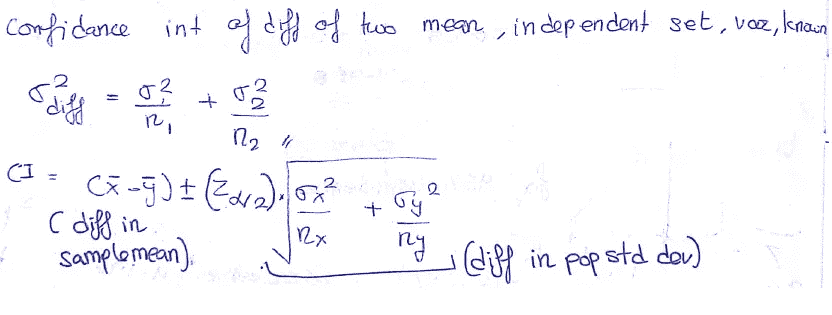 Confidance int of diff of two mean, independent set, var, known
σ²diff = σ₁²/n₁ + σ₂²/n₂ //
CI = (x̄-ȳ) ± (Zα/2). √(σx²/nx + σy²/ny)
(diff in samplemean). (diff in pop std dev)